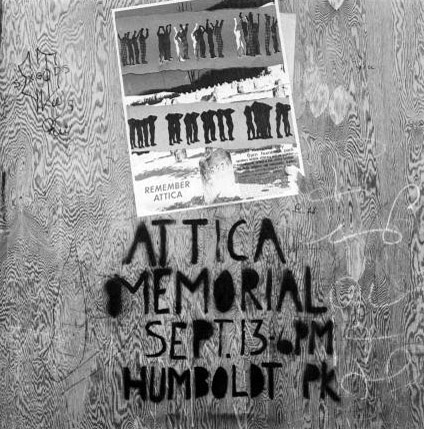 REMEMBER
ATTICA
ATTICA
MEMORIAL
SEPT. 13-6PM
HUMBOLDT PK